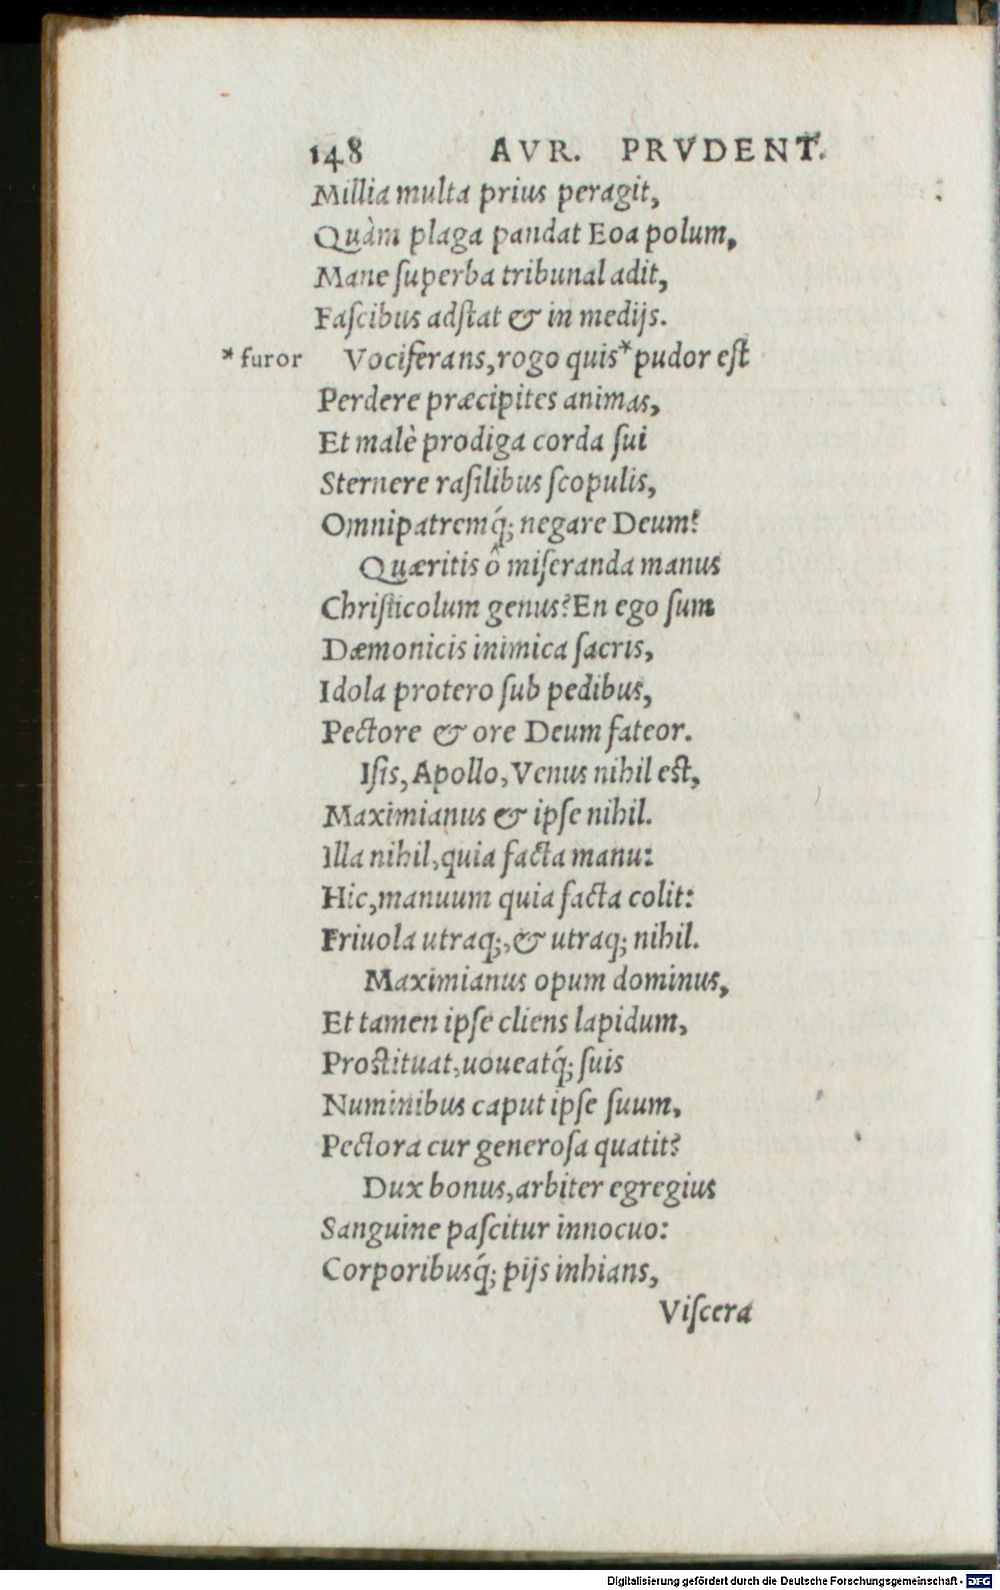 148 AVR. PRVDENT.
Millia multa prius peragit,
Quàm plaga pandat Eoa polum,
Mane ſuperba tribunal adit,
Faſcibus adſtat & in medijs.
* furor Vociferans, rogo quis * pudor eſt
Perdere præcipites animas,
Et malè prodiga corda ſui
Sternere raſilibus ſcopulis,
Omnipatremq́; negare Deum?
Quæritis ô miſeranda manus
Chriſticolum genus? En ego ſum
Dæmonicis inimica ſacris,
Idola protero ſub pedibus,
Pectore & ore Deum fateor.
Iſis, Apollo, Venus nihil eſt,
Maximianus & ipſe nihil.
Illa nihil, quia facta manu:
Hic, manuum quia facta colit:
Friuola utraq;, & utraq; nihil.
Maximianus opum dominus,
Et tamen ipſe cliens lapidum,
Proſtituat, uoueatq́; ſuis
Numinibus caput ipſe ſuum,
Pectora cur generoſa quatit?
Dux bonus, arbiter egregius
Sanguine paſcitur innocuo:
Corporibusq́; pijs inhians,
Viſcera
Digitalisierung gefördert durch die Deutsche Forschungsgemeinschaft - DFG